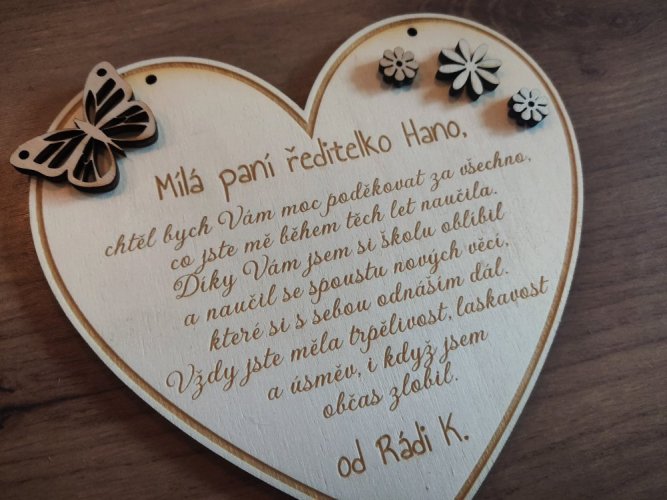 Milá paní ředitelko Hano,
chtěl bych Vám moc poděkovat za všechno,
co jste mě během těch let naučila.
Díky Vám jsem si školu oblíbil
a naučil se spoustu nových věcí,
které si s sebou odnáším dál.
Vždy jste měla trpělivost, laskavost
a úsměv, i když jsem
občas zlobil.
od Rádi K.